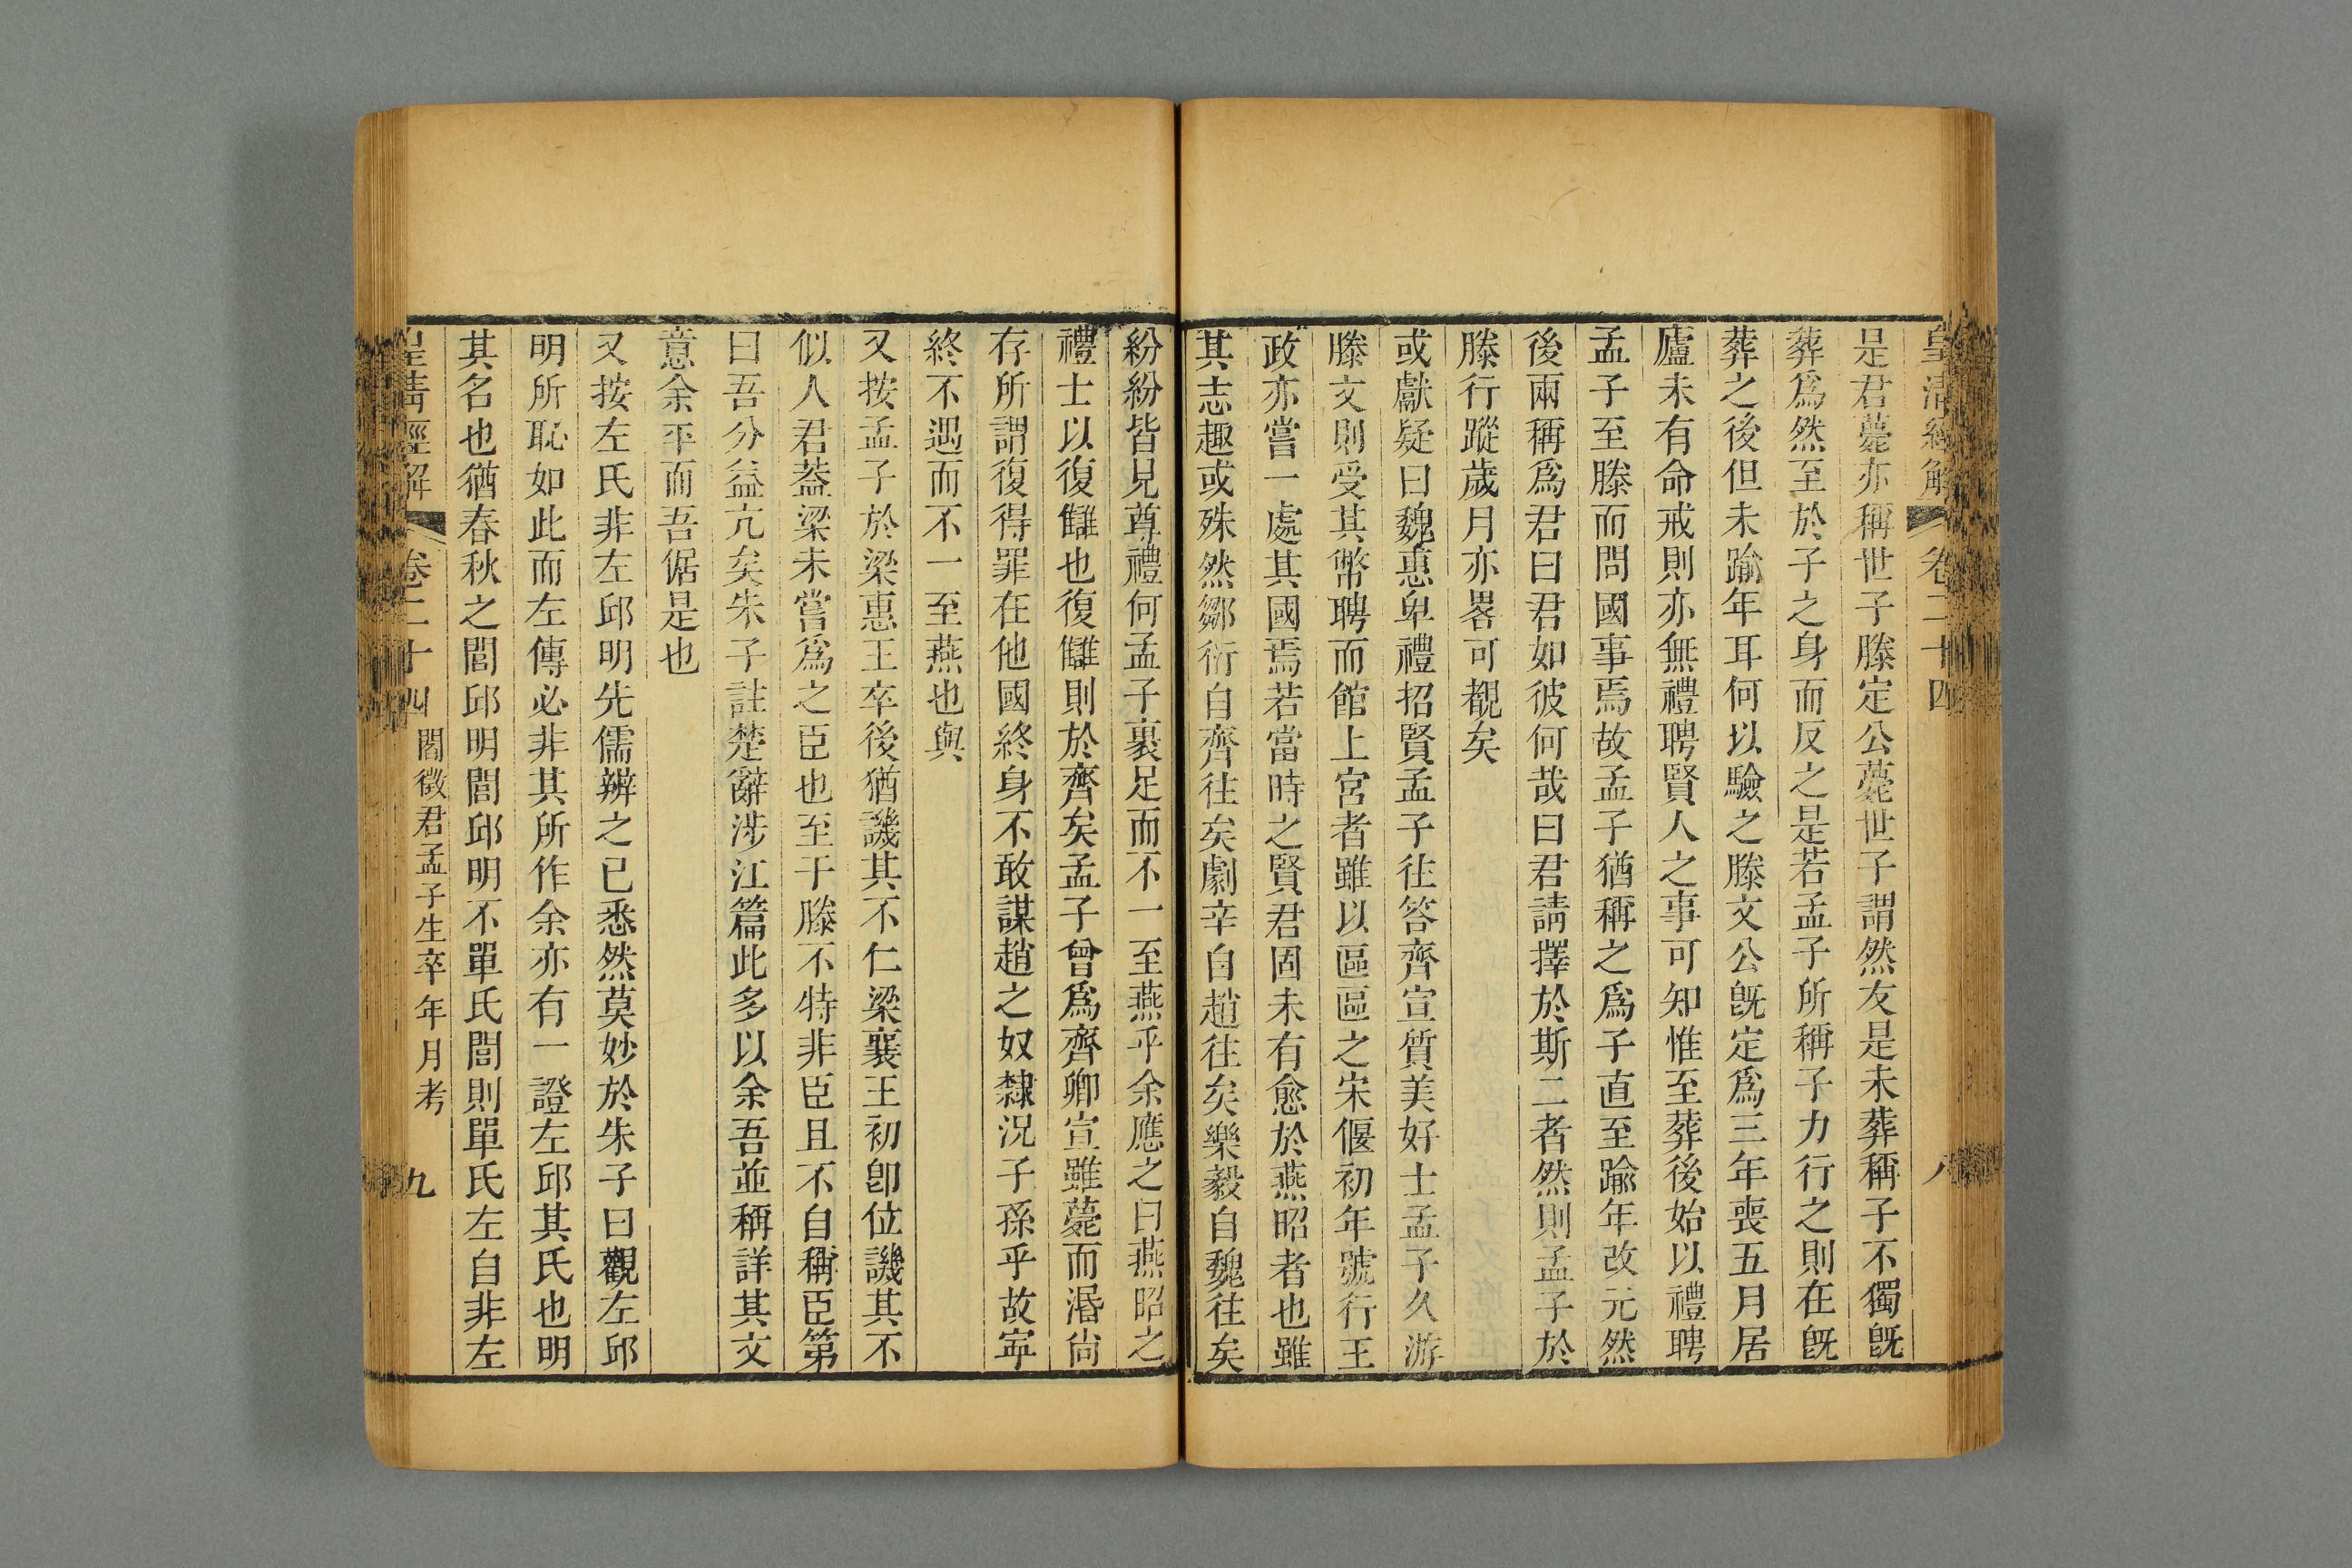 皇清經解 卷二十四 八
是君薨亦稱世子滕定公薨世子謂然友是未葬稱子不獨旣
葬爲然至於子之身而反之是若孟子所稱子力行之則在旣
葬之後但未踰年耳何以驗之滕文公旣定爲三年喪五月居
廬未有命戒則亦無禮聘賢人之事可知惟至葬後始以禮聘
孟子至滕而問國事焉故孟子猶稱之爲子直至踰年改元然
後兩稱爲君曰君如彼何哉曰君請擇於斯二者然則孟子於
滕行蹤歲月亦畧可覩矣
或獻疑曰魏惠卑禮招賢孟子往答齊宣質美好士孟子久游
滕文則受其幣聘而館上宮者雖以區區之宋偃初年號行王
政亦嘗一處其國焉若當時之賢君固未有愈於燕昭者也雖
其志趣或殊然鄒衍自齊往矣劇辛自趙往矣樂毅自魏往矣
紛紛皆見尊禮何孟子裹足而不一至燕乎余應之曰燕昭之
禮士以復讎也復讎則於齊矣孟子曾爲齊卿宣雖薨而湣尙
存所謂復得罪在他國終身不敢謀趙之奴隸況子孫乎故寕
終不遇而不一至燕也與
又按孟子於梁惠王卒後猶譏其不仁梁襄王初卽位譏其不
似人君葢梁未嘗爲之臣也至于滕不特非臣且不自稱臣第
曰吾分益亢矣朱子註楚辭涉江篇此多以余吾並稱詳其文
意余平而吾倨是也
又按左氏非左邱明先儒辨之已悉然莫妙於朱子曰觀左邱
明所恥如此而左傳必非其所作余亦有一證左邱其氏也明
其名也猶春秋之閭邱明閭邱明不單氏閭則單氏左自非左
皇清經解 卷二十四 閻徵君孟子生卒年月考 九